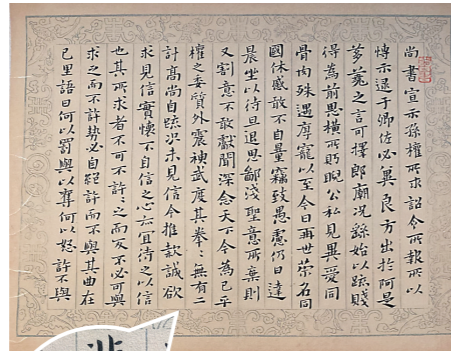 尚書宣示孫權所求詔令所報所以
博示逮于卿佐必冀良方出於阿是
芻蕘之言可擇郎廟況繇始以疏賤
得為前恩橫所盼睨公私見異愛同
骨肉殊遇厚寵以至今日再世榮名同
國休慼敢不自量竊致愚慮仍日達
晨坐以待旦退思鄙淺聖意所棄則
又割意不敢獻聞深念天下今為已平
權之委質外震神武度其拳〻無有二
計高尚自疏況未見信今推款誠欲
求見信實懷不自信之心亦宜待之以信
也其所求者不可不許〻之而反不必可與
求之而不許勢必自絕許而不與其曲在
己里語曰何以罰與以奪何以怒許不與